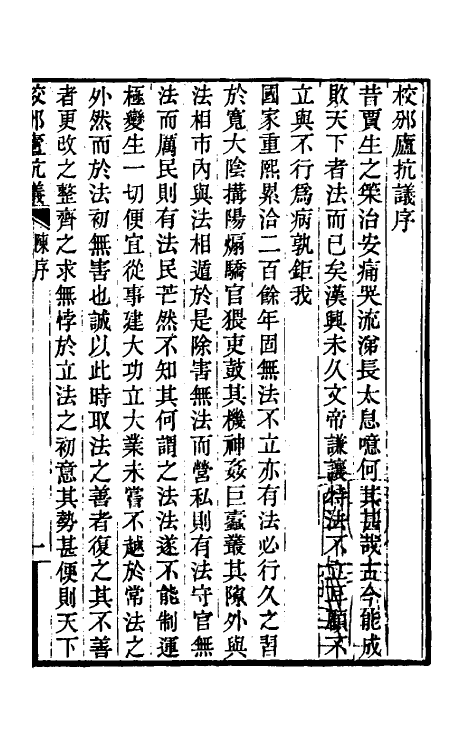 校邠廬抗議序
昔賈生之策治安痛哭流涕長太息噫何其甚哉古今能成
敗天下者法而已矣漢興未久文帝謙讓特法不立耳顧不
立與不行爲病孰鉅我
國家重熙累洽二百餘年固無法不立亦有法必行久之習
於寬大陰搆陽煽驕官猥吏鼓其機神姦巨蠹叢其隙外與
法相市內與法相遁於是除害無法而營私則有法守官無
法而厲民則有法民芒然不知其何謂之法法遂不能制運
極變生一切便宜從事建大功立大業未嘗不越於常法之
外然而於法初無害也誠以此時取法之善者復之其不善
者更改之整齊之求無悖於立法之初意其勢甚便則天下
校邠廬抗議 陳序 一